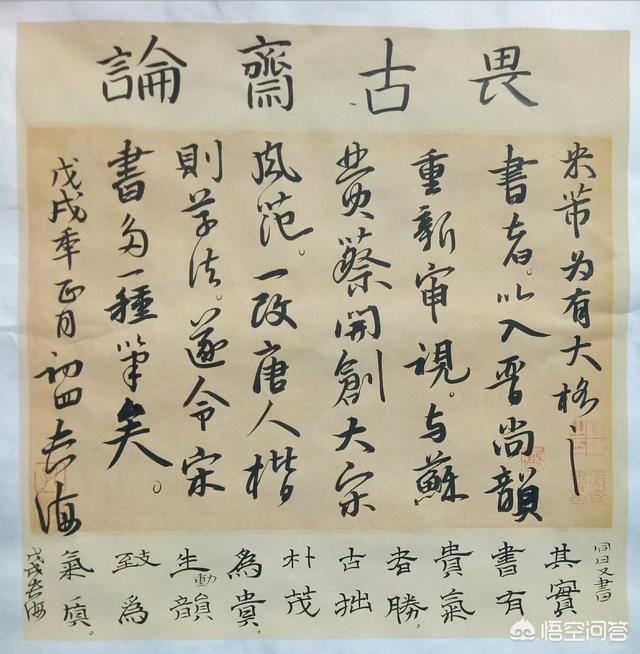 畏古齋論
米芾为有大格之
書者。以入晉尚韻
重新审視。与蘇
黄蔡開創大宋
风范。一改唐人楷
則法。遂令宋
書多一種笔矣。
戊戌年正月初四海
同日又書
其實
書有
貴氣
者勝。
古拙
朴茂
為貴。
生動韻
致為
氣。
戊戌海
悟空问答